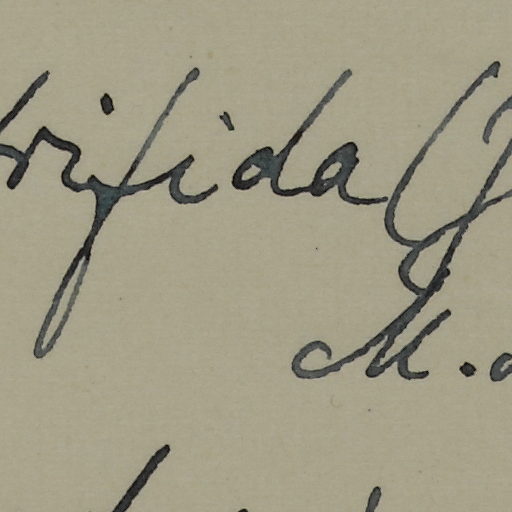 trifida (J
M.